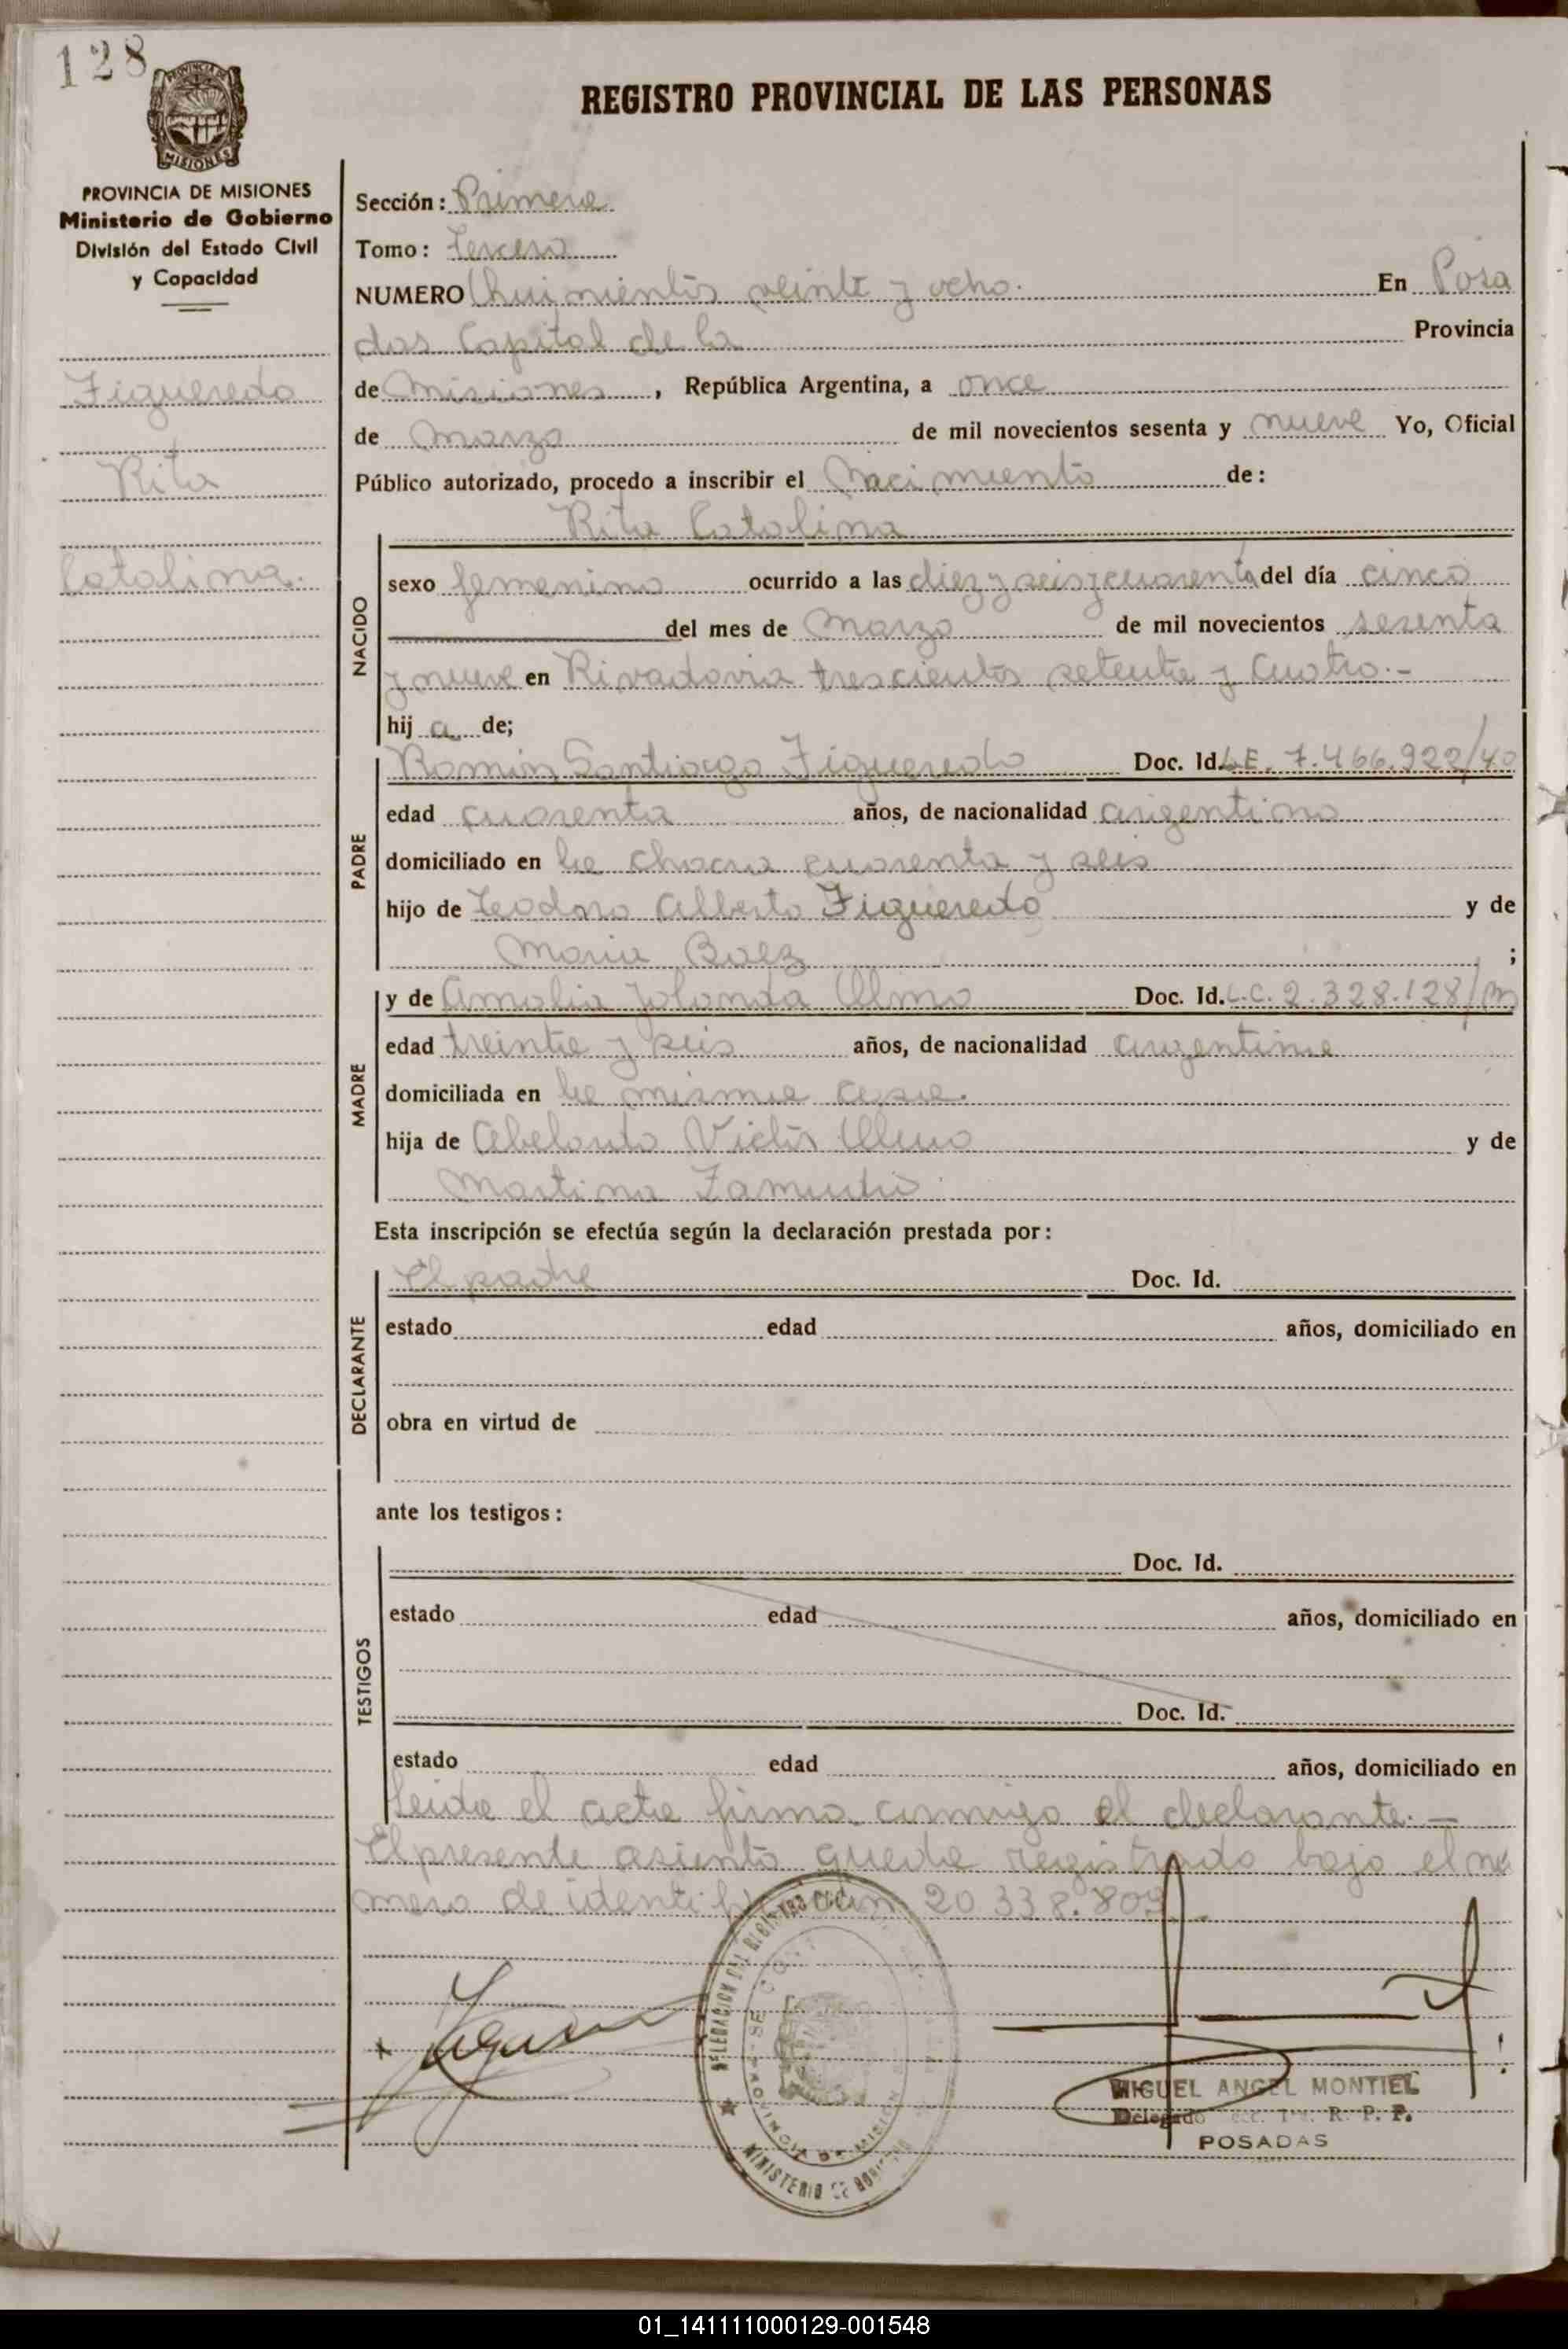 128
PROVINCIA DE MISIONES
MISIONES
PROVINCIA DE MISIONES
Ministerio de Gobierno
División del Estado Civil
y Capacidad
Figueredo
Rita
Catalina.
REGISTRO PROVINCIAL DE LAS PERSONAS
Sección: Primera
Tomo: Tercero
NUMERO Quinientos veinte y ocho. En Posa
das Capital de la Provincia
de Misiones, República Argentina, a once
de Marzo de mil novecientos sesenta y nueve Yo, Oficial
Público autorizado, procedo a inscribir el Nacimiento de:
Rita Catalina
NACIDO
sexo femenino ocurrido a las diez y seis y cuarenta del día cinco
del mes de Marzo de mil novecientos sesenta
y nueve en Rivadavia trescientos setenta y cuatro.-
hij a de;
PADRE
Román Santiago Figueredo Doc. Id. L.E. 7.466.922/40
edad cuarenta años, de nacionalidad argentina
domiciliado en la chacra cuarenta y seis
hijo de Teodoro Alberto Figueredo y de
Maria Baez ;
MADRE
y de Amalia Jolanda Olmo Doc. Id. L.C. 2.328.128/M
edad treinta y seis años, de nacionalidad argentina
domiciliada en la misma casa.
hija de Abelardo Victor Olmo y de
Martina
Esta inscripción se efectúa según la declaración prestada por:
DECLARANTE
El padre Doc. Id.
estado edad años, domiciliado en
obra en virtud de
ante los testigos:
TESTIGOS
Doc. Id.
estado edad años, domiciliado en
Doc. Id.
estado edad años, domiciliado en
Leida el acta firma conmigo el declarante.-
El presente asiento queda registrado bajo el nú
mero de identificación 20.338.809
DELEGACION DEL REGISTRO
PROVINCIA DE MISIONES
MINISTERIO DE GOBIERNO
MIGUEL ANGEL MONTIEL
Delegado Secc. 1ra. R. P. P.
POSADAS
01_141111000129-001548